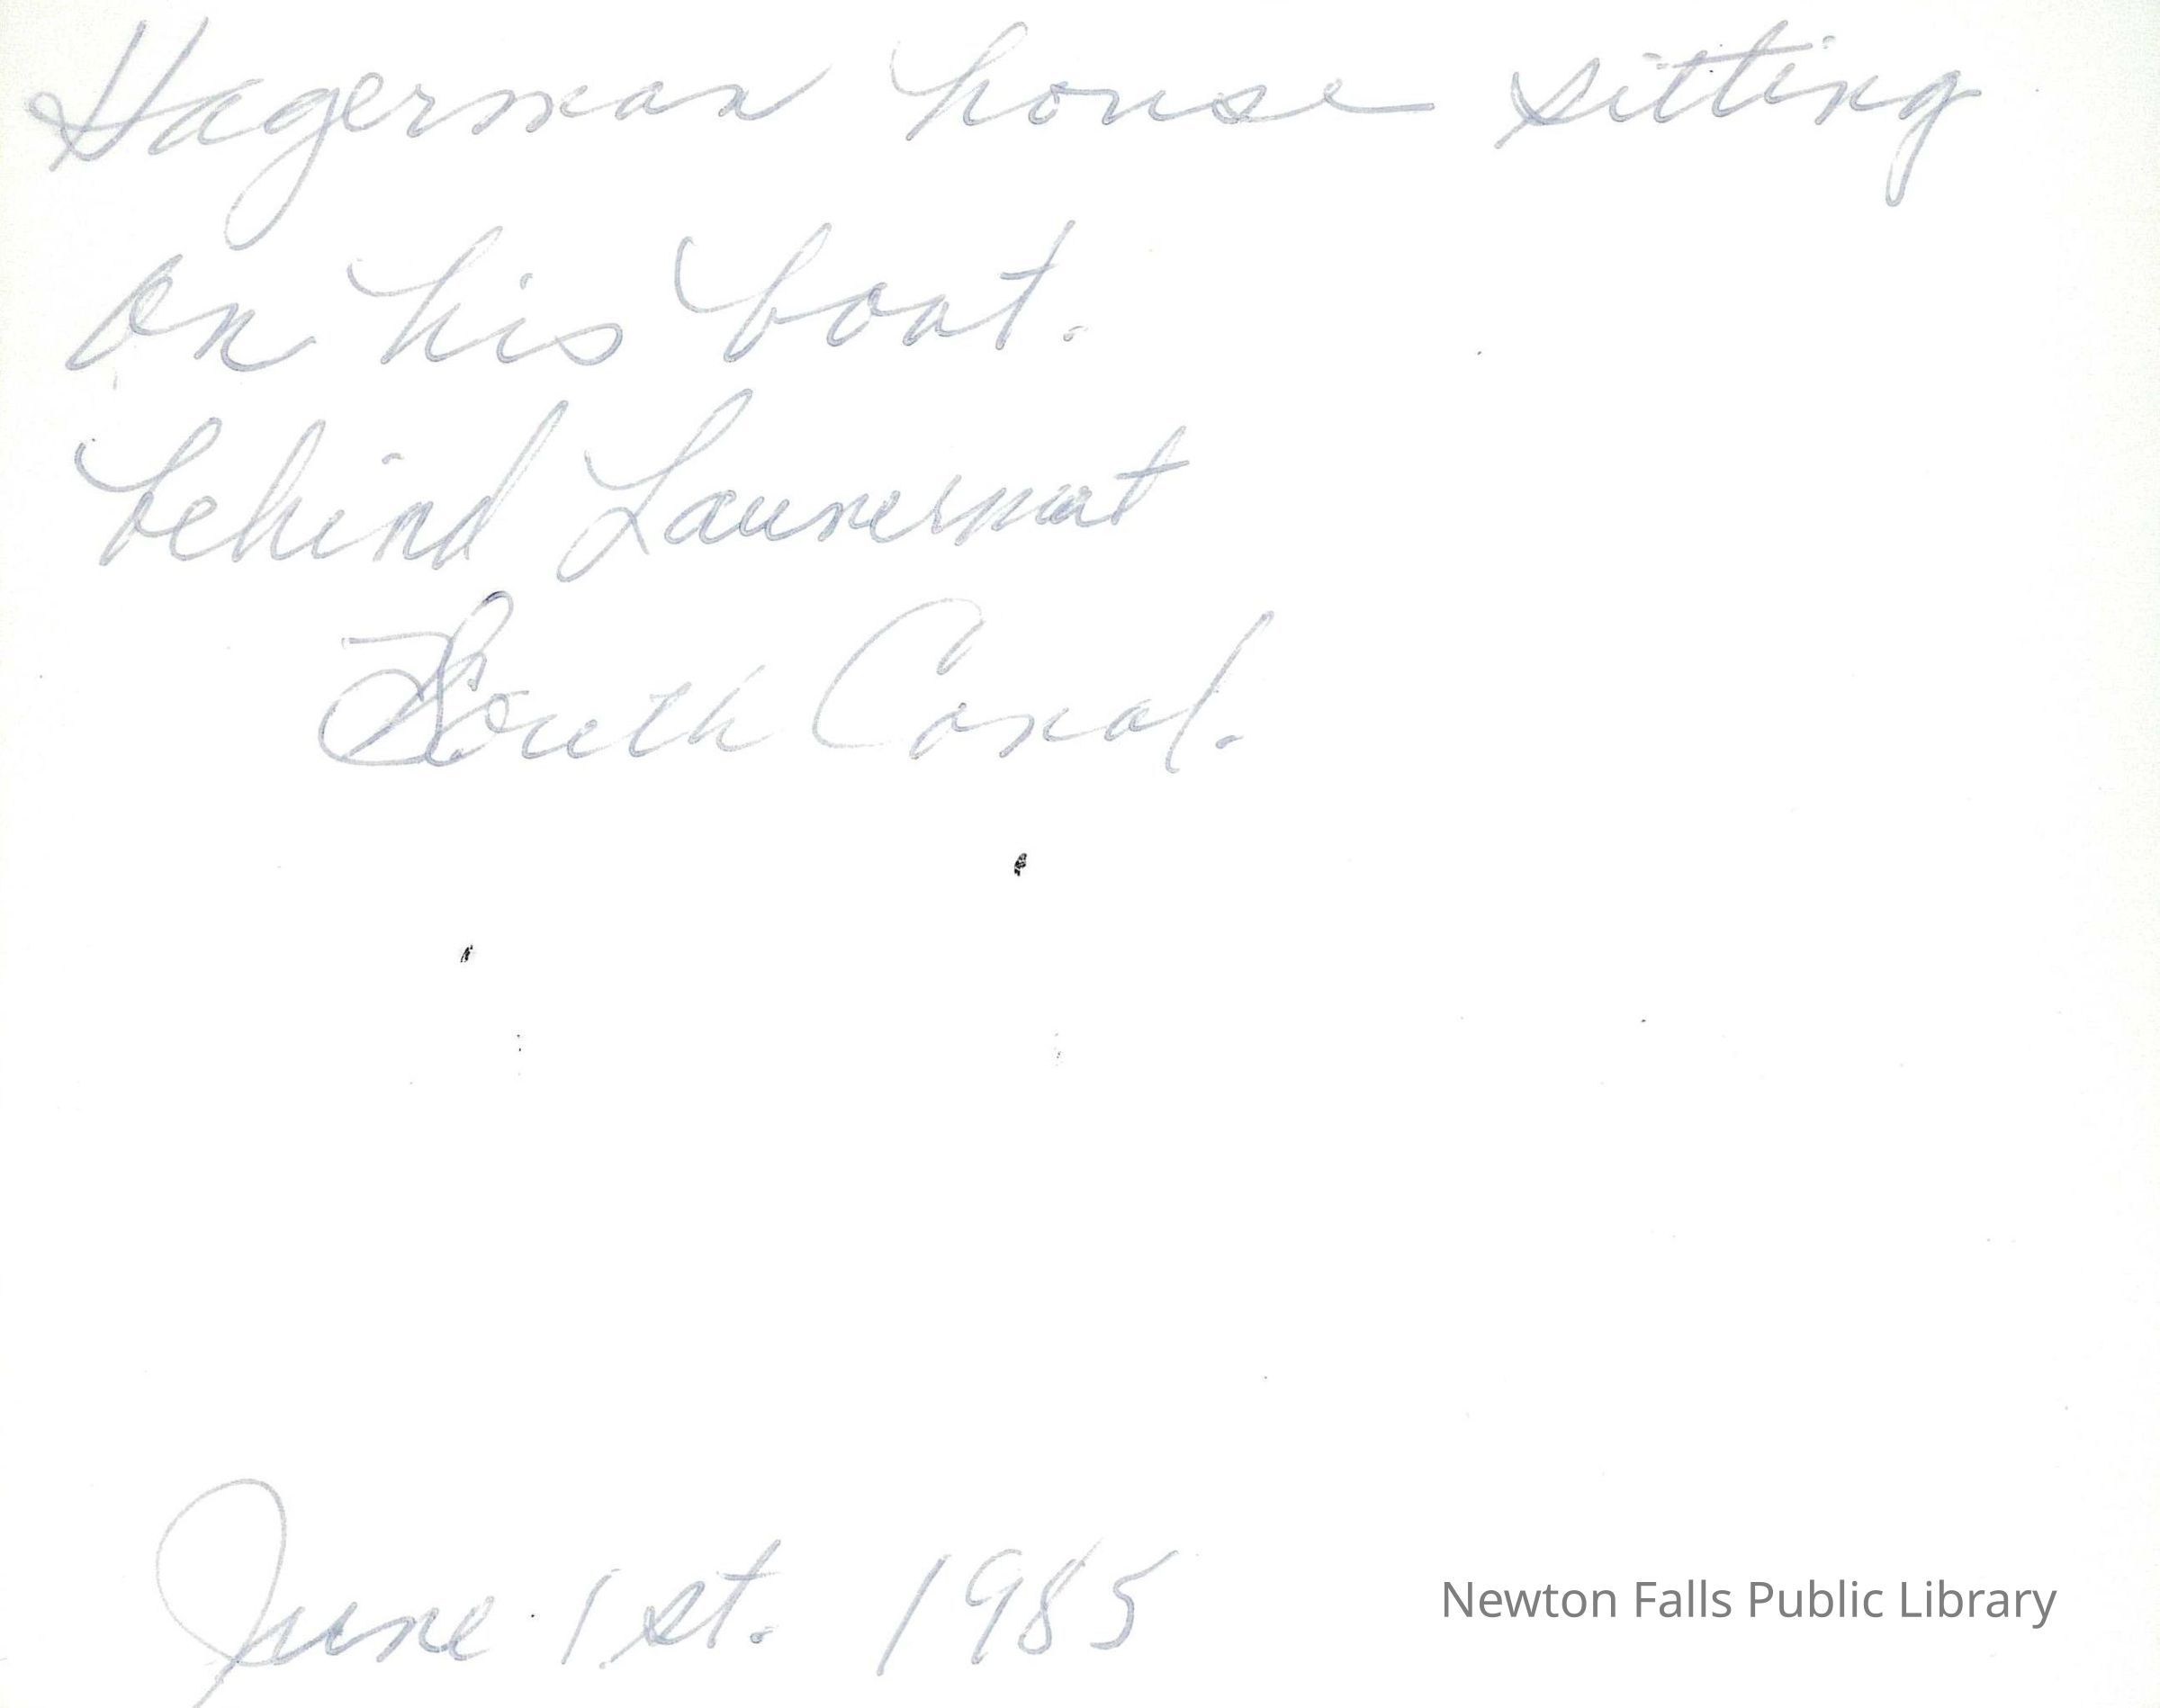 Hagerman house sitting
on his boat.
behind Launermat
South Canal.
June 1st. 1985
Newton Falls Public Library